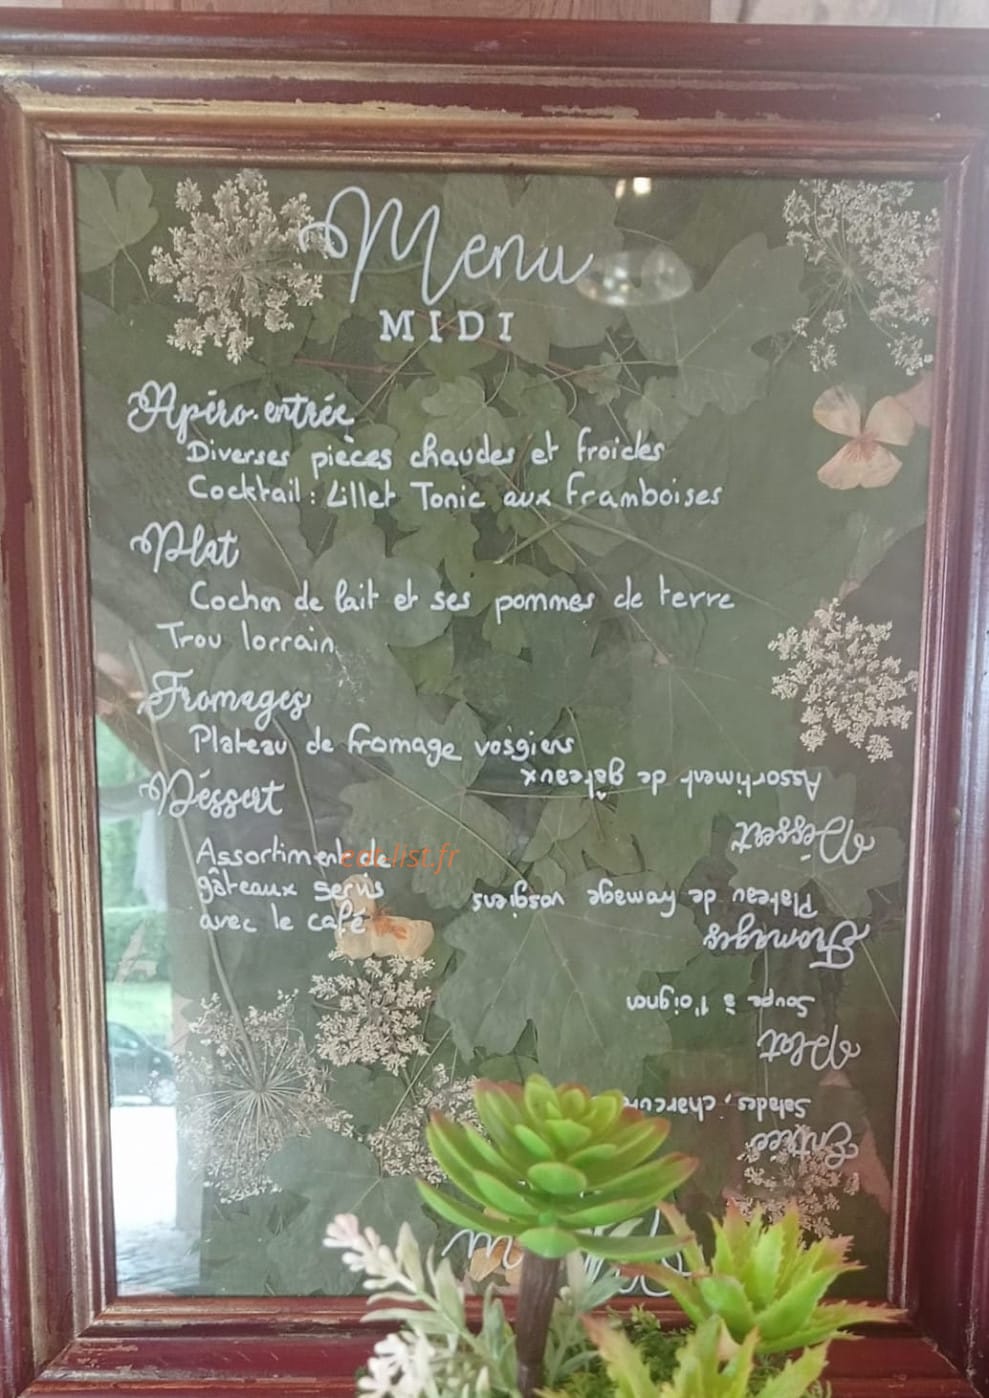 Menu
MIDI
Apéro-entrée
Diverses pièces chaudes et froides
Cocktail : Lillet Tonic aux framboises
Plat
Cochon de lait et ses pommes de terre
Trou lorrain
Fromages
Plateau de fromage vosgiens
Déssert
Assortiment de
gâteaux servis
avec le café
eat-list.fr
Entrée
Salades,
Plat
Soupe à l'oignon
Fromages
Plateau de fromage vosgiens
Déssert
Assortiment de gâteaux